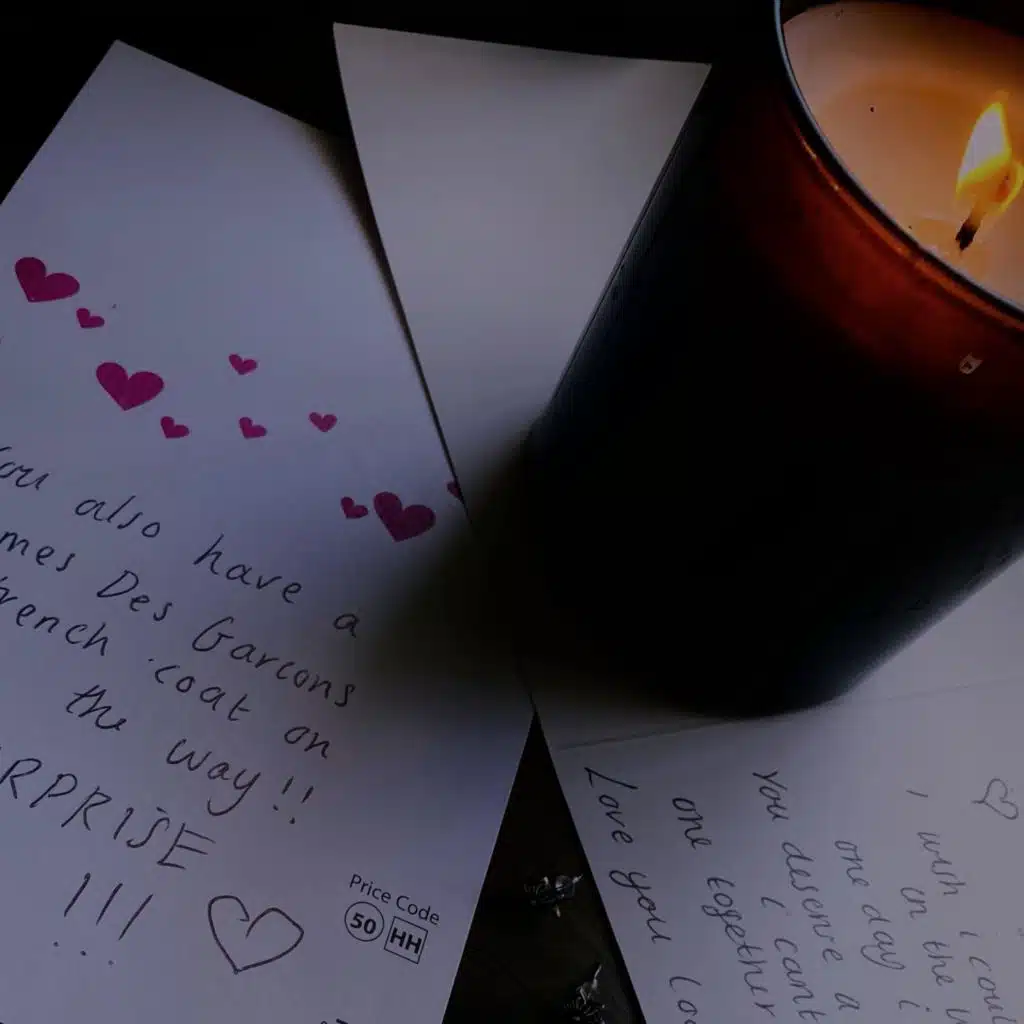 You also have a
mes Des Garcons
rench coat on
the way!!
RPRISE
!!!
Price Code
50 HH
I wish I coul
in the w
one day i
You deserve a
i cant
one together
Love you lo